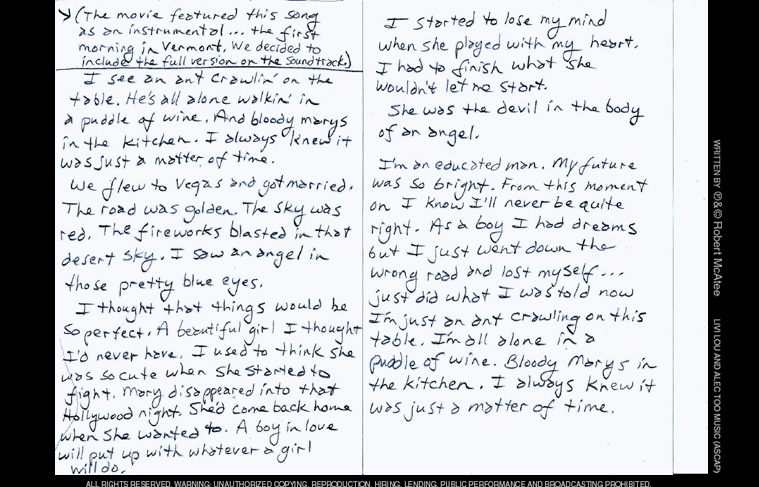 (The movie featured this song
as an instrumental... the first
morning in Vermont. We decided to
include the full version on the Soundtrack)
I see an ant crawlin' on the
table. He's all alone walkin' in
a puddle of wine. And bloody marys
in the kitchen. I always knew it
was just a matter of time.
We flew to Vegas and got married.
The road was golden. The sky was
red. The fireworks blasted in that
desert sky. I saw an angel in
those pretty blue eyes.
I thought that things would be
so perfect. A beautiful girl I thought
I'd never have. I used to think she
was so cute when she started to
fight. Mary disappeared into that
Hollywood night. She'd come back home
when she wanted to. A boy in love
will put up with whatever a girl
will do.
I started to lose my mind
when she played with my heart.
I had to finish what she
wouldn't let me start.
She was the devil in the body
of an angel.
I'm an educated man. My future
was so bright. From this moment
on I know I'll never be quite
right. As a boy I had dreams
but I just went down the
wrong road and lost myself...
just did what I was told now
I'm just an ant crawling on this
table. I'm all alone in a
puddle of wine. Bloody Marys in
the kitchen. I always knew it
was just a matter of time.
WRITTEN BY ℗&© Robert McAtee LIVI LOU AND ALEC TOO MUSIC (ASCAP)
ALL RIGHTS RESERVED. WARNING: UNAUTHORIZED COPYING, REPRODUCTION, HIRING, LENDING, PUBLIC PERFORMANCE AND BROADCASTING PROHIBITED.